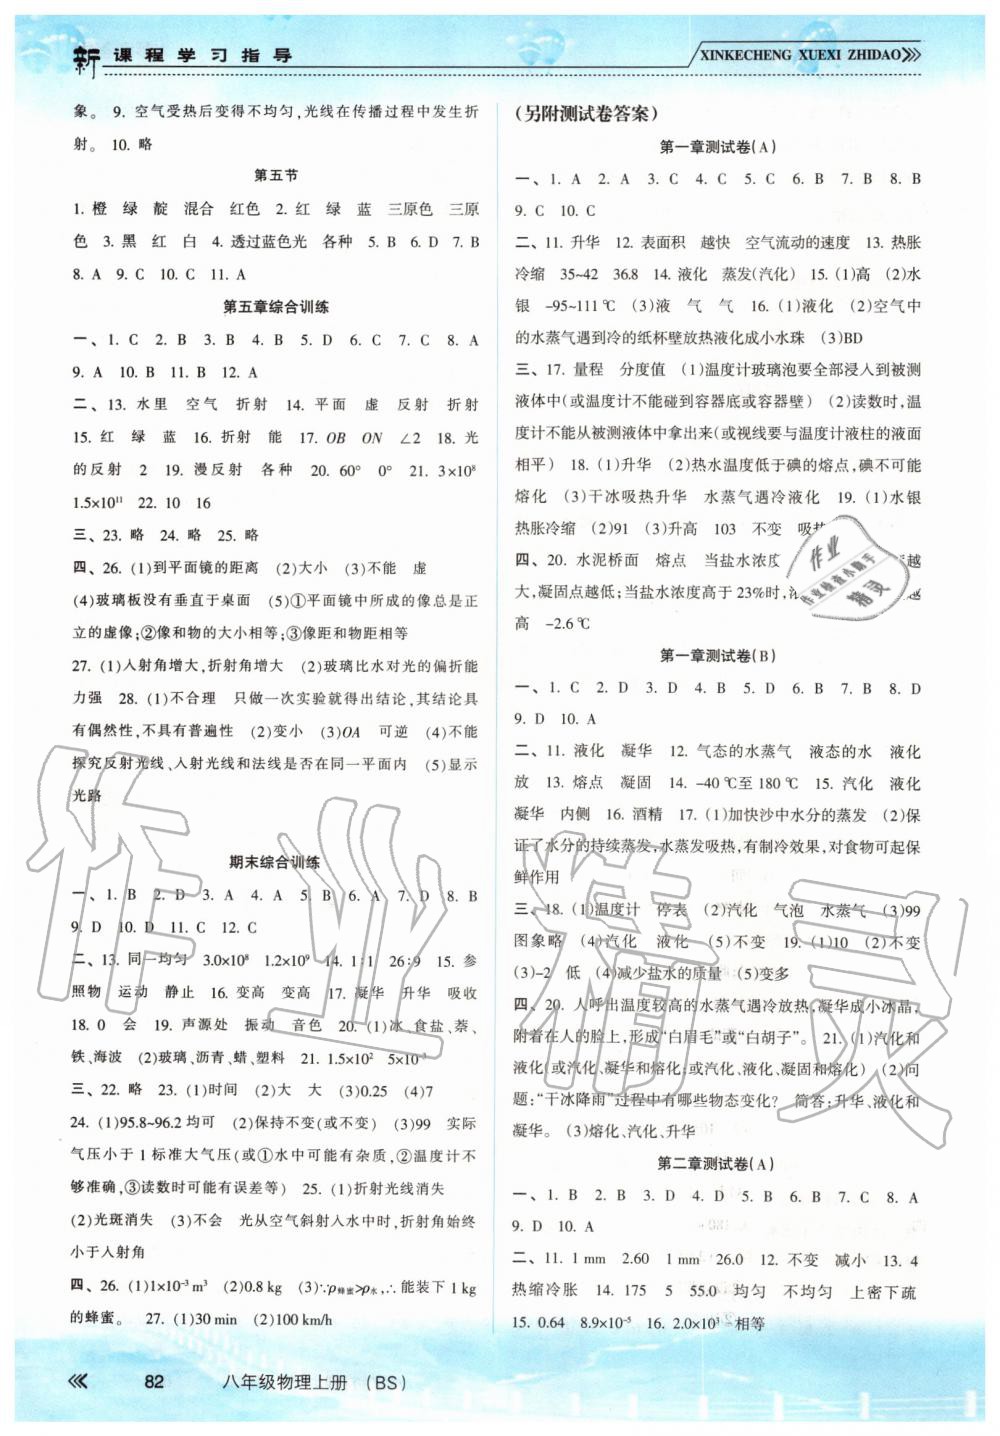 新课程学习指导
XINKECHENG XUEXI ZHIDAO
象。 9. 空气受热后变得不均匀,光线在传播过程中发生折
射。 10. 略
第五节
1. 橙 绿 靛 混合 红色 2. 红 绿 蓝 三原色 三原
色 3. 黑 红 白 4. 透过蓝色光 各种 5. B 6. D 7. B
8. A 9. C 10. C 11. A
第五章综合训练
一、1. C 2. B 3. B 4. B 5. D 6. C 7. C 8. A
9. A 10. B 11. B 12. A
二、13. 水里 空气 折射 14. 平面 虚 反射 折射
15. 红 绿 蓝 16. 折射 能 17. OB ON ∠2 18. 光
的反射 2 19. 漫反射 各种 20. 60° 0° 21. 3×10⁸
1.5×10¹¹ 22. 10 16
三、23. 略 24. 略 25. 略
四、26. (1)到平面镜的距离 (2)大小 (3)不能 虚
(4)玻璃板没有垂直于桌面 (5)①平面镜中所成的像总是正
立的虚像;②像和物的大小相等;③像距和物距相等
27. (1)入射角增大,折射角增大 (2)玻璃比水对光的偏折能
力强 28. (1)不合理 只做一次实验就得出结论,其结论具
有偶然性,不具有普遍性 (2)变小 (3)OA 可逆 (4)不能
探究反射光线、入射光线和法线是否在同一平面内 (5)显示
光路
期末综合训练
一、1. B 2. D 3. A 4. A 5. B 6. A 7. D 8. B
9. D 10. D 11. C 12. C
二、13. 同一均匀 3.0×10⁸ 1.2×10⁹ 14. 1∶1 26∶9 15. 参
照物 运动 静止 16. 变高 变高 17. 凝华 升华 吸收
18. 0 会 19. 声源处 振动 音色 20. (1)冰、食盐、萘、
铁、海波 (2)玻璃、沥青、蜡、塑料 21. 1.5×10² 5×10⁻³
三、22. 略 23. (1)时间 (2)大 大 (3)0.25 (4)7
24. (1)95.8~96.2均可 (2)保持不变(或不变) (3)99 实际
气压小于1标准大气压(或①水中可能有杂质,②温度计不
够准确,③读数时可能有误差等) 25. (1)折射光线消失
(2)光斑消失 (3)不会 光从空气斜射入水中时,折射角始终
小于入射角
四、26. (1)1×10⁻³ m³ (2)0.8 kg (3)∵ρ蜂蜜>ρ水,∴能装下1 kg
的蜂蜜。 27. (1)30 min (2)100 km/h
(另附测试卷答案)
第一章测试卷(A)
一、1. A 2. A 3. C 4. C 5. C 6. B 7. B 8. B
9. C 10. C
二、11. 升华 12. 表面积 越快 空气流动的速度 13. 热胀
冷缩 35~42 36.8 14. 液化 蒸发(汽化) 15. (1)高 (2)水
银 -95~111 ℃ (3)液 气 气 16. (1)液化 (2)空气中
的水蒸气遇到冷的纸杯壁放热液化成小水珠 (3)BD
三、17. 量程 分度值 (1)温度计玻璃泡要全部浸入到被测
液体中(或温度计不能碰到容器底或容器壁) (2)读数时,温
度计不能从被测液体中拿出来(或视线要与温度计液柱的液面
相平) 18. (1)升华 (2)热水温度低于碘的熔点,碘不可能
熔化 (3)干冰吸热升华 水蒸气遇冷液化 19. (1)水银
热胀冷缩 (2)91 (3)升高 103 不变 吸热
四、20. 水泥桥面 熔点 当盐水浓度 越
大,凝固点越低;当盐水浓度高于23%时, 越
高 -2.6 ℃
第一章测试卷(B)
一、1. C 2. D 3. D 4. A 5. D 6. B 7. B 8. D
9. D 10. A
二、11. 液化 凝华 12. 气态的水蒸气 液态的水 液化
放 13. 熔点 凝固 14. -40 ℃至180 ℃ 15. 汽化 液化
凝华 内侧 16. 酒精 17. (1)加快沙中水分的蒸发 (2)保
证了水分的持续蒸发,水蒸发吸热,有制冷效果,对食物可起保
鲜作用
三、18. (1)温度计 停表 (2)汽化 气泡 水蒸气 (3)99
图象略 (4)汽化 液化 (5)不变 19. (1)10 (2)不变
(3)-2 低 (4)减少盐水的质量 (5)变多
四、20. 人呼出温度较高的水蒸气遇冷放热,凝华成小冰晶,
附着在人的脸上,形成“白眉毛”或“白胡子”。 21. (1)汽化和
液化(或汽化、凝华和熔化;或汽化、液化、凝固和熔化) (2)问
题:“干冰降雨”过程中有哪些物态变化? 简答:升华、液化和
凝华。 (3)熔化、汽化、升华
第二章测试卷(A)
一、1. B 2. B 3. D 4. D 5. B 6. B 7. C 8. A
9. D 10. A
二、11. 1 mm 2.60 1 mm 26.0 12. 不变 减小 13. 4
热缩冷胀 14. 175 5 55.0 均匀 不均匀 上密下疏
15. 0.64 8.9×10⁻⁵ 16. 2.0×10³ 相等
82 八年级物理上册 (BS)
作业精灵
作业
作业检查小助手
精灵